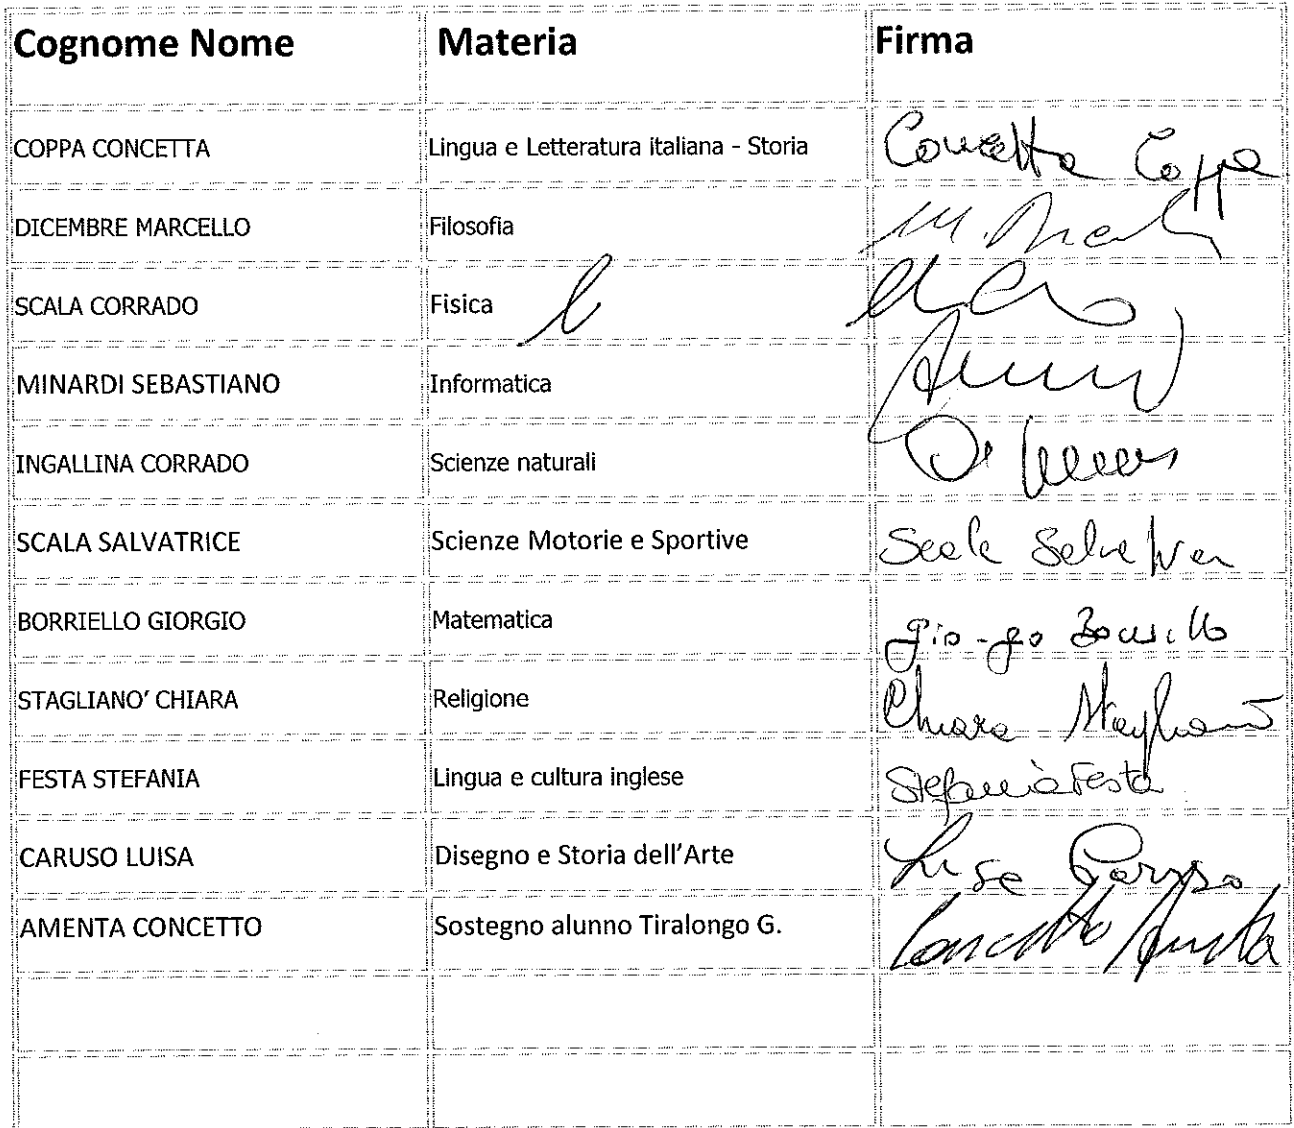 Cognome Nome Materia Firma
COPPA CONCETTA Lingua e Letteratura italiana - Storia Concetta Coppa
DICEMBRE MARCELLO Filosofia
SCALA CORRADO Fisica
MINARDI SEBASTIANO Informatica
INGALLINA CORRADO Scienze naturali
SCALA SALVATRICE Scienze Motorie e Sportive Scala Salvatrice
BORRIELLO GIORGIO Matematica Giorgio Borriello
STAGLIANO' CHIARA Religione Chiara Staglianò
FESTA STEFANIA Lingua e cultura inglese Stefania Festa
CARUSO LUISA Disegno e Storia dell'Arte Luisa Caruso
AMENTA CONCETTO Sostegno alunno Tiralongo G. Concetto Amenta